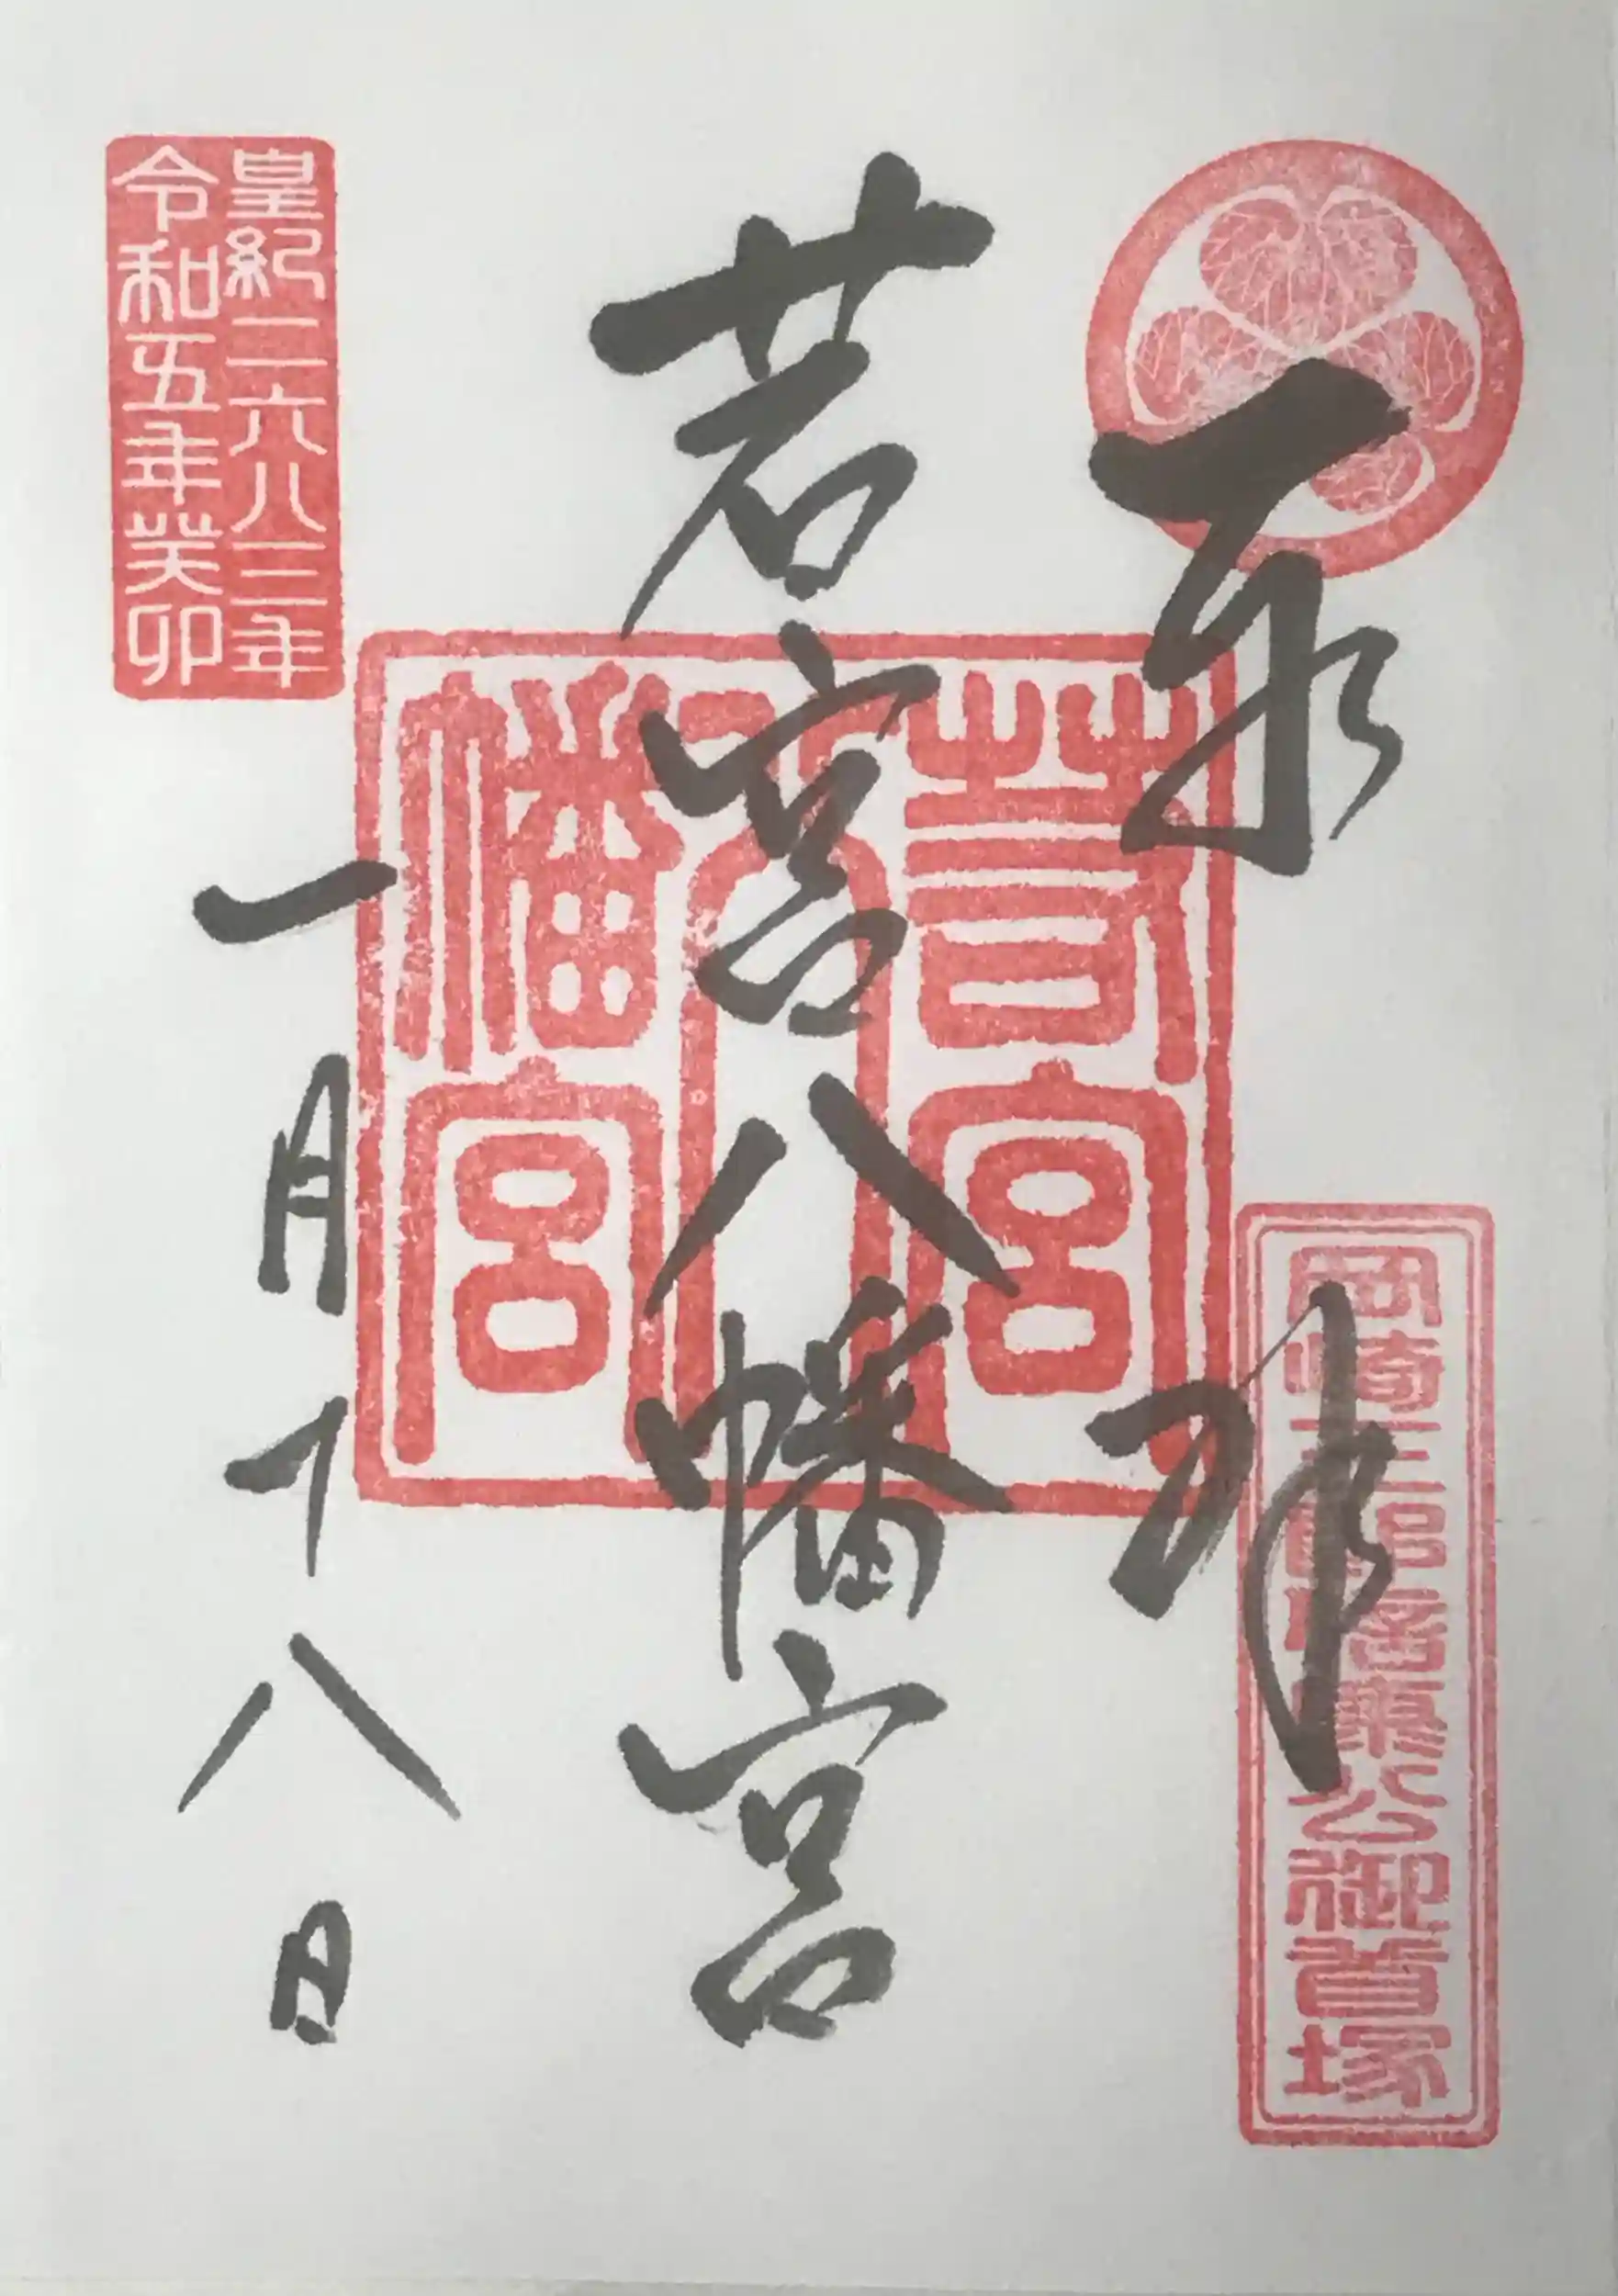 奉拝
岡崎三郎信康公御首塚
若宮八幡宮
若宮
八
幡宮
皇紀二六八三年
令和五年癸卯
一月十八日